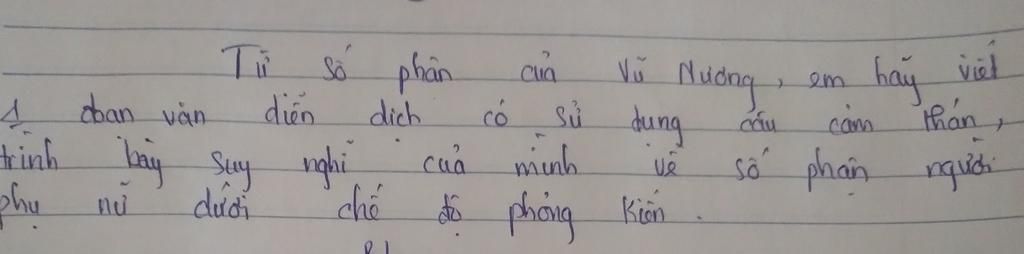 Từ số phận của Vũ Nương, em hãy viết
1 đoạn văn diễn dịch có sử dụng câu cảm thán,
trình bày suy nghĩ của mình về số phận người
phụ nữ dưới chế độ phong kiến.